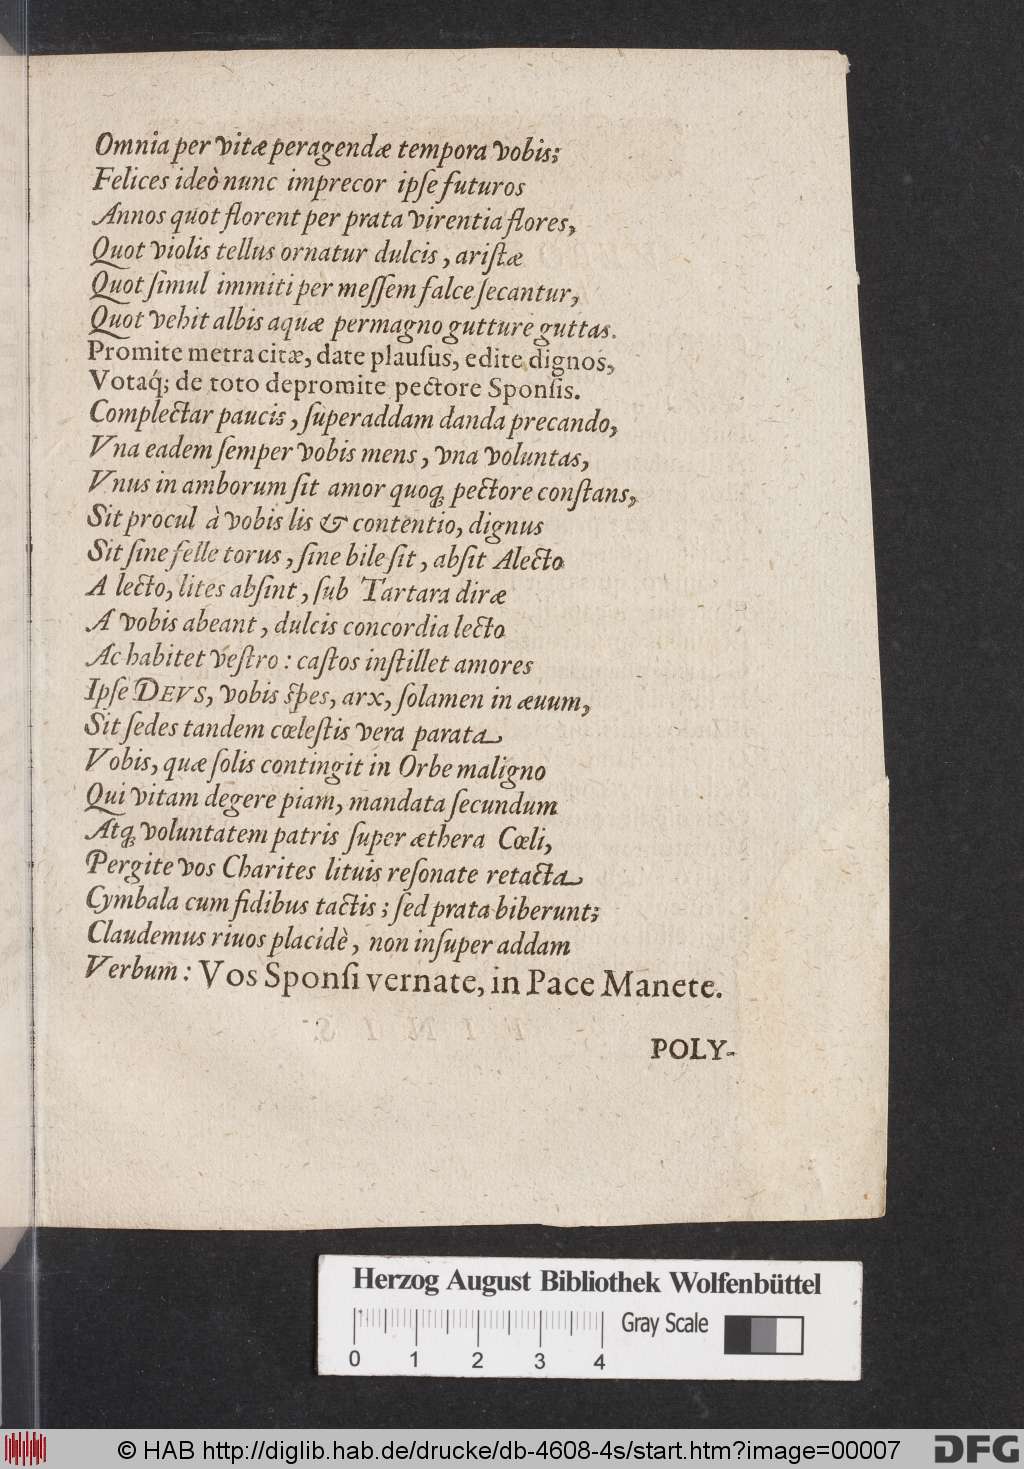 Omnia per vitæ peragendæ tempora vobis;
Felices ideò nunc imprecor ipſe futuros
Annos quot florent per prata virentia flores,
Quot violis tellus ornatur dulcis, ariſtæ
Quot ſimul immiti per meſſem falce ſecantur,
Quot vehit albis aquæ permagno gutture guttas.
Promite metra citæ, date plauſus, edite dignos,
Votaq́; de toto depromite pectore Sponſis.
Complectar paucis, ſuperaddam danda precando,
Vna eadem ſemper vobis mens, vna voluntas,
Vnus in amborum ſit amor quoq; pectore conſtans,
Sit procul à vobis lis & contentio, dignus
Sit ſine felle torus, ſine bile ſit, abſit Alecto
A lecto, lites abſint, ſub Tartara diræ
A vobis abeant, dulcis concordia lecto
Ac habitet veſtro: caſtos inſtillet amores
Ipſe DEVS, vobis ſpes, arx, ſolamen in æuum,
Sit ſedes tandem cœleſtis vera parata
Vobis, quæ ſolis contingit in Orbe maligno
Qui vitam degere piam, mandata ſecundum
Atq; voluntatem patris ſuper æthera Cœli,
Pergite vos Charites lituis reſonate retacta
Cymbala cum fidibus tactis; ſed prata biberunt;
Claudemus riuos placidè, non inſuper addam
Verbum: Vos Sponſi vernate, in Pace Manete.
POLY-
Herzog August Bibliothek Wolfenbüttel
0 1 2 3 4 Gray Scale
© HAB http://diglib.hab.de/drucke/db-4608-4s/start.htm?image=00007 DFG